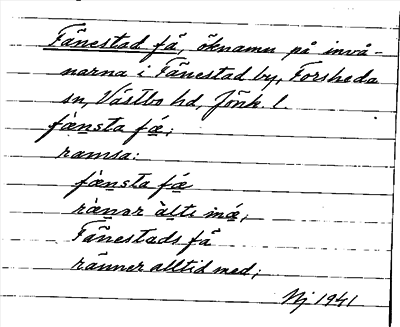 Fånestad få, öknamn på invå-
narna i Fånestad by, Forsheda
sn, Västbo hd, Jönk. l.
fæ̀nsta fæ;
ramsa:
fæ̀nsta fæ
ræ̀nər àlti mæ;
Fånestads få
ränner alltid med;
Nj 1941